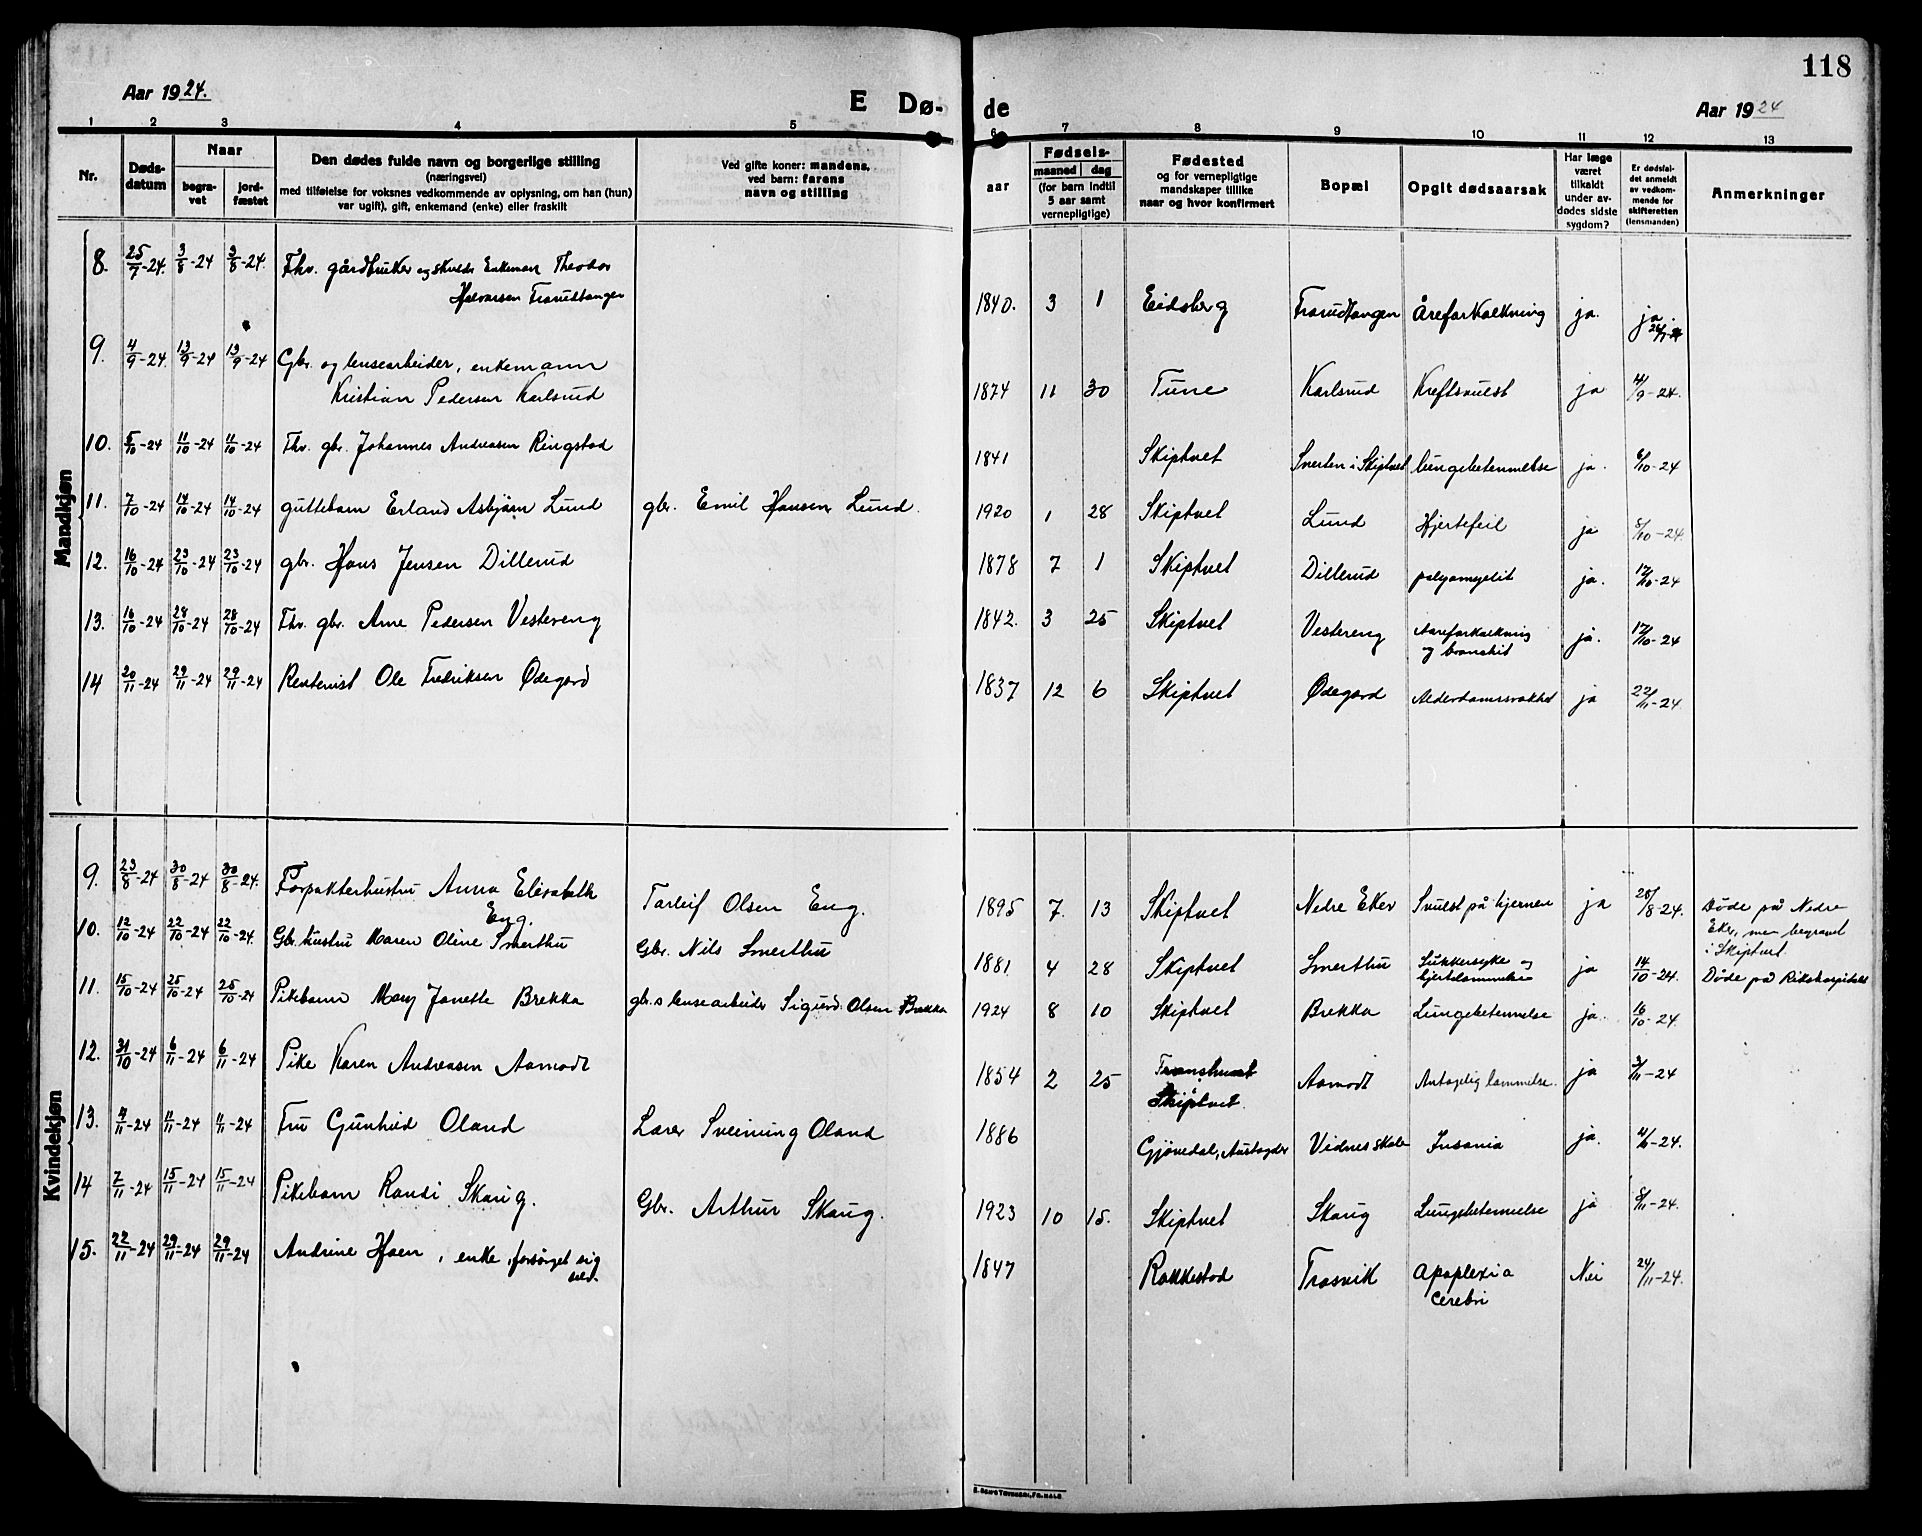 118
Aar 1924.
E Dø-
de
Aar 1924
1 2 3 4 5 6 7 8 9 10 11 12 13
Nr.
Døds-
datum
Naar
begra-
vet
jord-
fæstet
Den dødes fulde navn og borgerlige stilling
(næringsvei)
med tilføielse for voksnes vedkommende av oplysning, om han (hun)
var ugift), gift, enkemand (enke) eller fraskilt
Ved gifte koner: mandens,
ved barn: farens
navn og stilling
aar
Fødsels-
maaned dag
(for barn indtil
5 aar samt
vernepligtige)
Fødested
og for vernepligtige
mandskaper tillike
naar og hvor konfirmert
Bopæl
Opgit dødsaarsak
Har læge
været
tilkaldt
under av-
dødes sidste
sygdom?
Er dødsfal-
det anmeldt
av vedkom-
mende for
skifteretten
(lensmanden)
Anmerkninger
Mandkjøn
8. 25/7-24. 3/8-24 3/8-24. Fhv. gårdbruker og skredder Enkeman Theodor
Halvorsen Frarudtangen
1840. 3 1 Eidsberg Frarudtangen Åreforkalkning ja. ja
9. 4/9-24. 13/9-24 13/9-24 Gbr. og lensearbeider, enkemann
Kristian Pedersen Karlsrud
1874 11 30 Tune Karlsrud Kreftsvulst ja 4/9-24.
10. 5/10-24 11/10-24 11/10-24 Fhv. gbr. Johannes Andreasen Ringstad
1841 Skiptvet i Skiptvet lungebetennelse ja. 6/10-24
11. 7/10-24 14/10-24 14/10-24 guttebarn Erland Asbjørn Lund gbr. Emil Hansen Lund.
1920 1 28 Skiptvet Lund Hjertefeil ja 8/10-24.
12. 16/10-24 23/10-24 23/10-24 gbr. Hans Jensen Dillerud
1878 7 1 Skiptvet Dillerud polyomyelit ja. 17/10-24
13. 16/10-24 28/10-24 28/10-24 Fhv. gbr. Arne Pedersen Vestereng
1842. 3 25 Skiptvet Vestereng Aareforkalkning
og bronchit ja. 17/10-24
14 20/11-24 29/11-24 29/11-24 Rentenist Ole Fredriksen Ødegard
1837 12 6 Skiptvet Ødegard Alderdomssvakhet ja 22/11-24.
Kvindekjøn
9. 23/8-24 30/8-24 30/8-24. Forpakterhustru Anna Elisabeth
Eng. Torleif Olsen Eng.
1895 7. 13 Skiptvet Nedre Eker Svulst på hjernen ja 25/8-24. Døde på Nedre
Eker, men begravet
i Skiptvet.
10. 12/10-24 22/10-24 22/10-24 Gbr. hustru Maren Oline Smerthu Gbr. Nils Smerthu
1881. 4 28 Skiptvet Smerthu Sukkersyke og
hjertelammelse ja 14/10-24. Døde på Rikshospitalet
11. 15/10-24 25/10-24 25/10-24 Pikebarn Mary Janette Brekka gbr. o lensearbeider Sigurd Olsen Brekka
1924 8 10 Skiptvet Brekka Lungebetennelse ja. 16/10-24.
12. 31/10-24 6/11-24 6/11-24 Pike Karen Andreasen Aamodt
1854 2 25 Skiptvet. Aamodt Antagelig lammelse. ja 3/11-24
13. 4/11-24 11/11-24 11/11-24 Fru Gunhild Oland Lærer Sveinung Oland
1886 Gjøvedal, Austagder Vidnes skole Insania ja.
14 7/11-24 15/11-24 15/11-24 Pikebarn Randi Skaug. Gbr. Arthur Skaug.
1923 10 15. Skiptvet Skaug Lungebetennelse ja 8/11-24.
15. 22/11-24 29/11-24 29/11-24 Andrine Haen, enke, forsørget sig
selv.
1847 Rakkestad Trosvik Apoplexia
cerebri Nei 24/11-24.